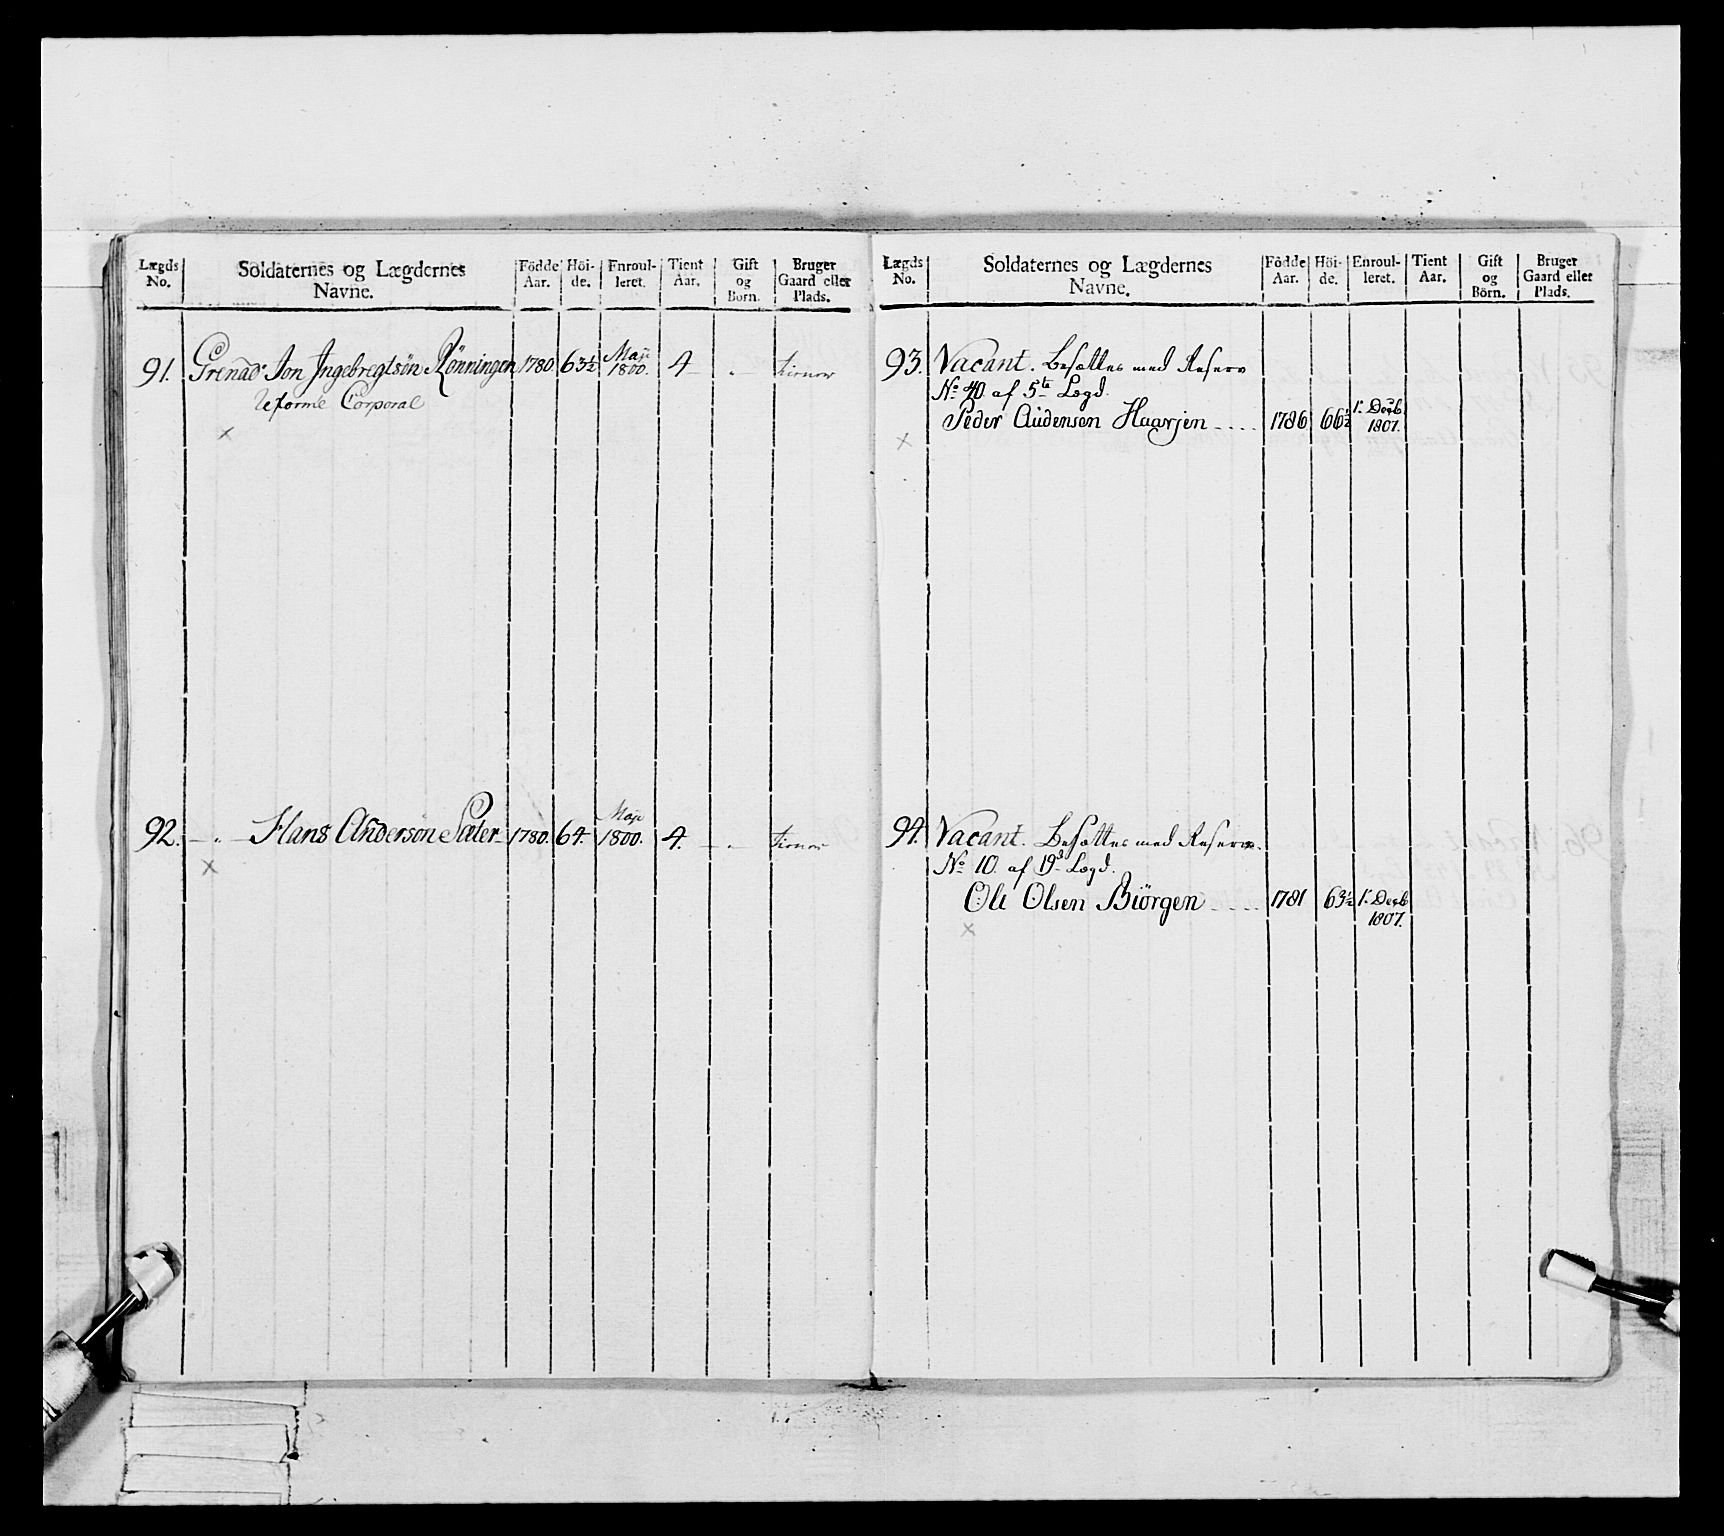 Lægds No. Soldaternes og Lægdernes Navne. Födde Aar. Höi-de. Enroul-leret. Tient Aar. Gift og Börn. Bruger Gaard eller Plads.
91. Grenad: Jon Ingebregtsön Rönningen 1780 63½ Maji 1800. 4 - " - tienner
Reforme Corporal
x
92. - " - Hans Andersön Sæter 1780. 64. Maji 1800. 4. - " - tienner
x
Lægds No. Soldaternes og Lægdernes Navne. Födde Aar. Höi-de. Enroul-leret. Tient Aar. Gift og Börn. Bruger Gaard eller Plads.
93. Vacant. Besættes med Reserv
No 40 af 5te Lægd.
Peder Audensen Haarjen 1786 66½ 1. Decb 1807.
x
94. Vacant. Besættes med Reserv.
No 10. af 19d Lægd.
Ole Olsen Biörgen 1781 63½ 1. Decb 1807.
x